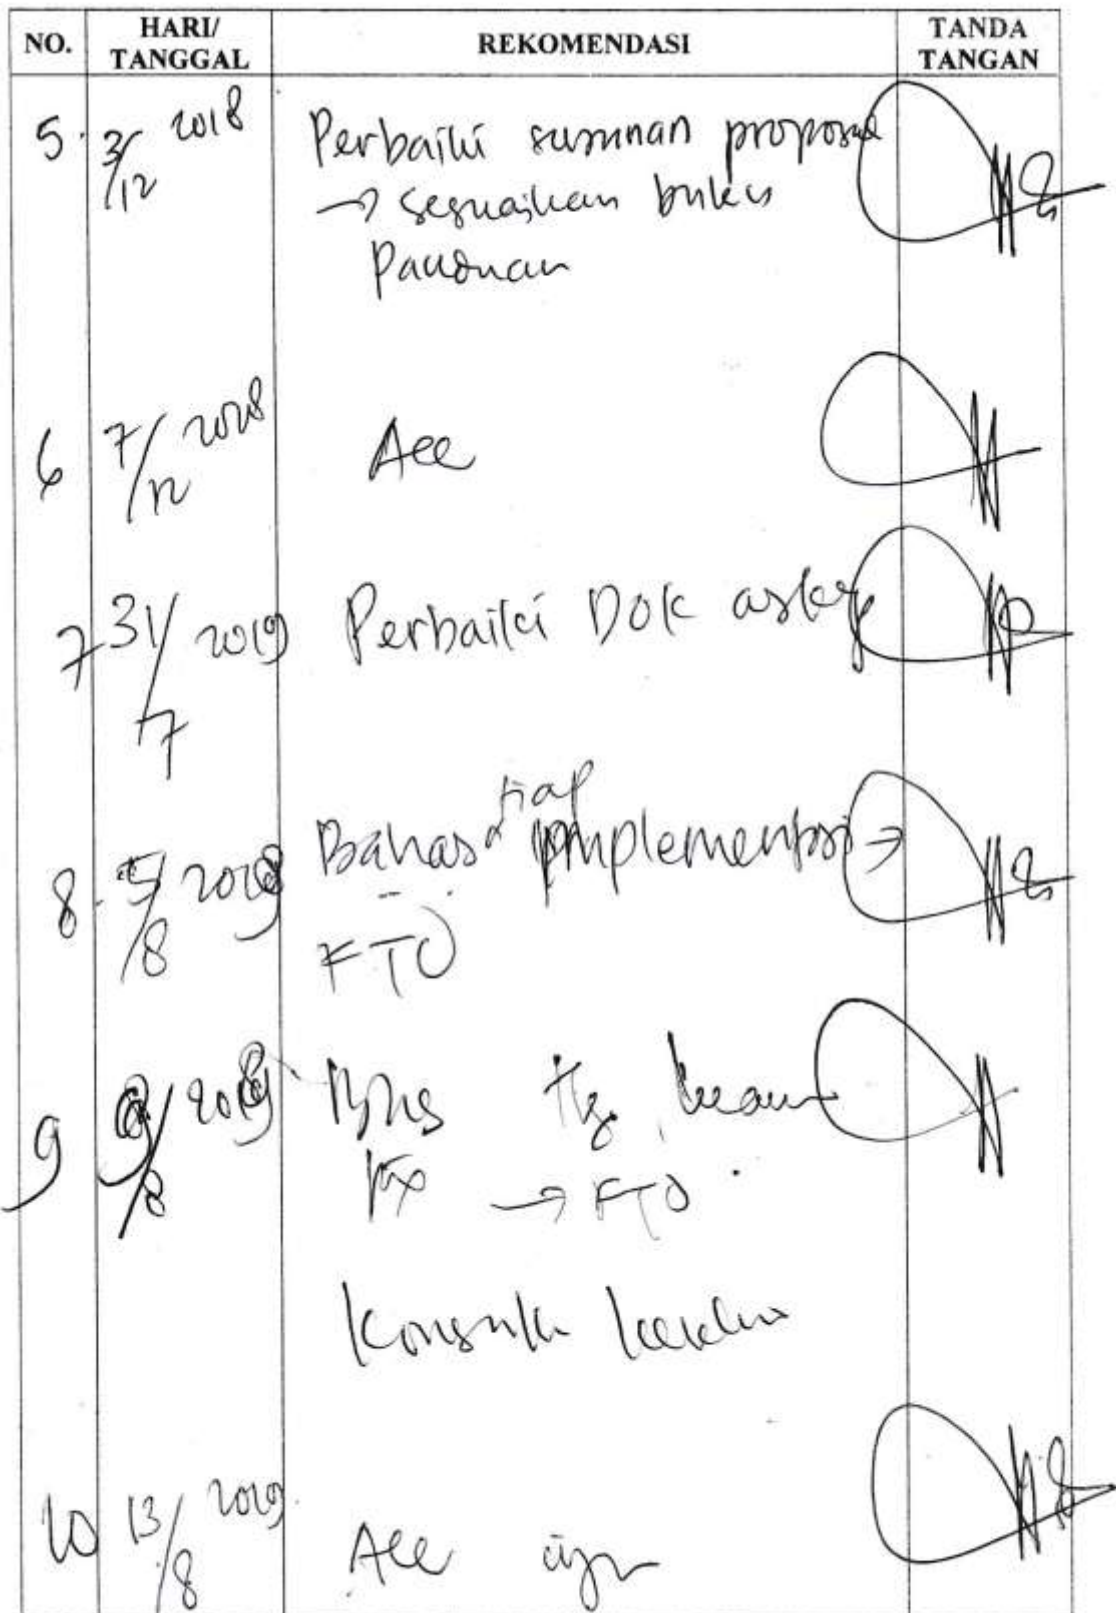 NO. HARI/ TANGGAL REKOMENDASI TANDA TANGAN
5. 3/12 2018 Perbaiki susunan proposal
→ sesuaikan buku
Panduan
6 7/12 2018 Acc
7 31/7 2019 Perbaiki Dok askep
8. 5/8 2019 Bahas tiap implementasi →
FTO
9 9/8 2019
→ FTO.
Konsul
10 13/8 2019 Acc ujn